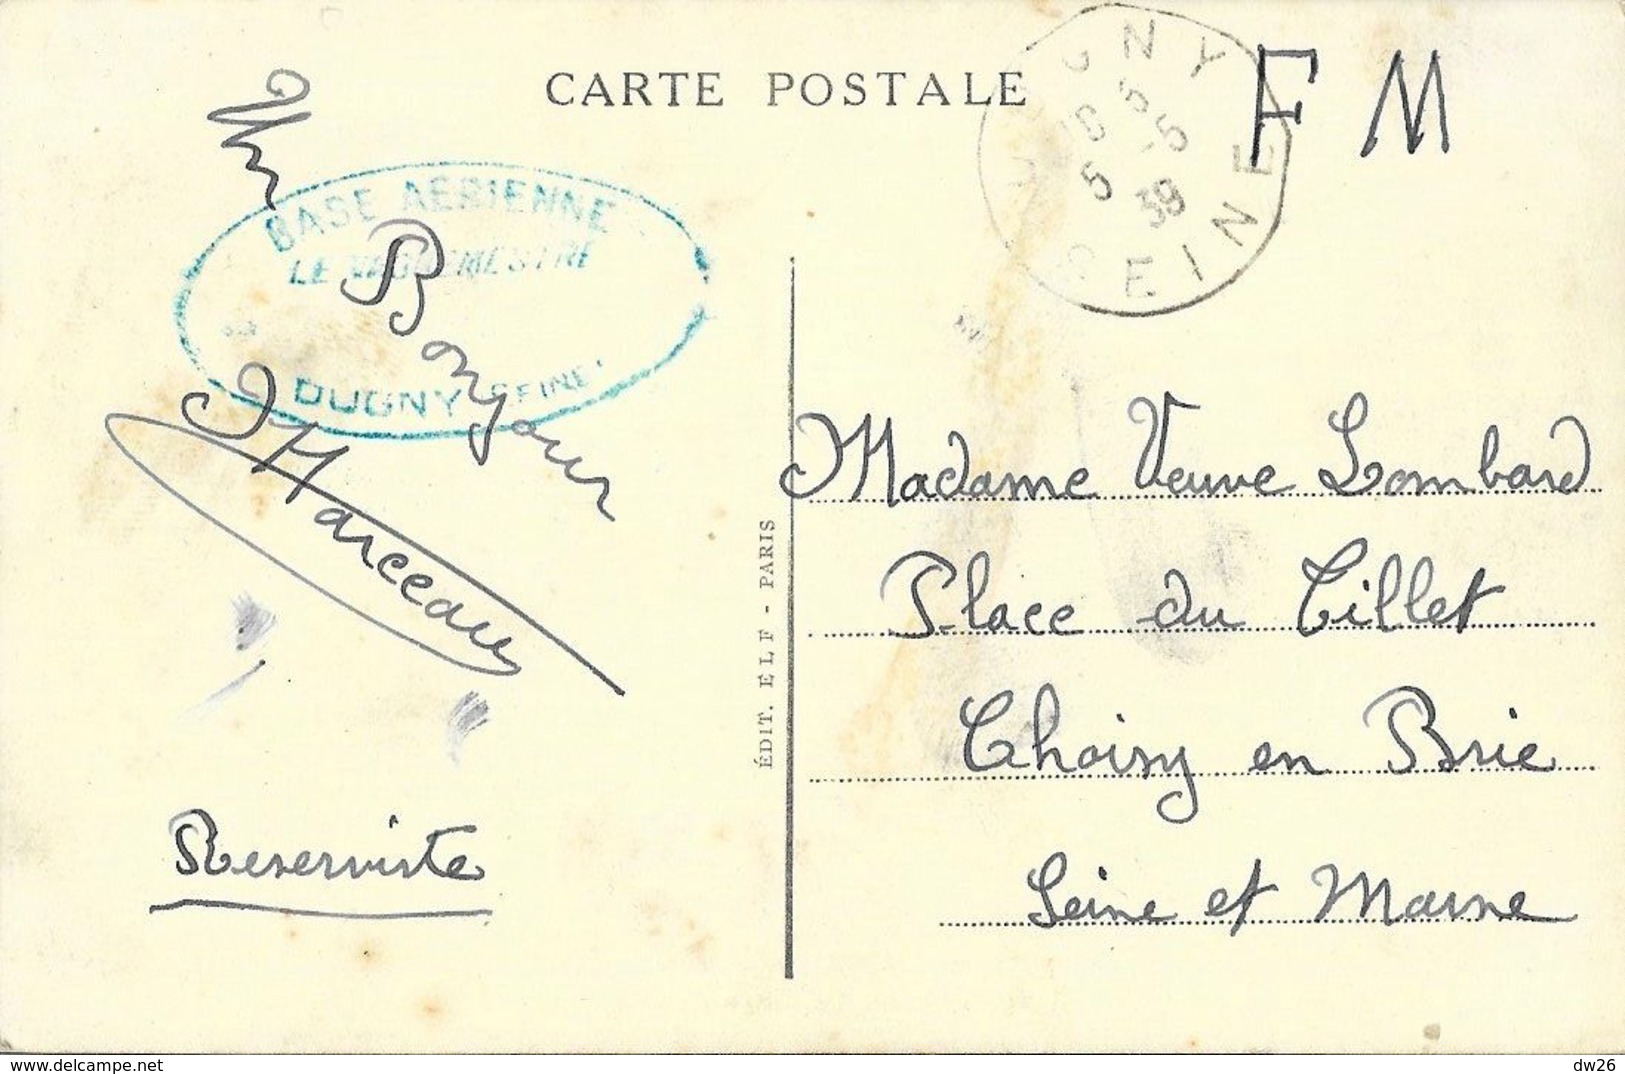 CARTE POSTALE
F M
DUGNY
SEINE
5 -5
39
BASE AÉRIENNE
LE VAGUEMESTRE
DUGNY (SEINE)
Un Bonjour
Marceau
Reserviste
ÉDIT. ELF - PARIS
Madame Veuve Lombard
Place du Tillet
Choisy en Brie
Seine et Marne
delcampe.net
dw26